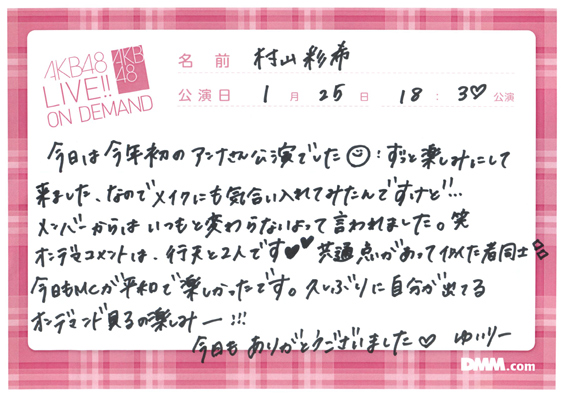 AKB48
LIVE!!
ON DEMAND
AKB
48
名前 村山彩希
公演日 1月25日 18:30公演
今日は今年初のアンナさん公演でした!ずっと楽しみにして
来ました、なのでメイクにも気合い入れてみたんですけど…
メンバーからはいつもと変わらないよって言われました。笑
オンデマコメントは、行天と2人です♥♥共通点があって似た者同士
今日もMCが平和で楽しかったです。久しぶりに自分が出てる
オンデマンド見るの楽しみー!!!
今日もありがとうございました♡ ゆいりー
DMM.com